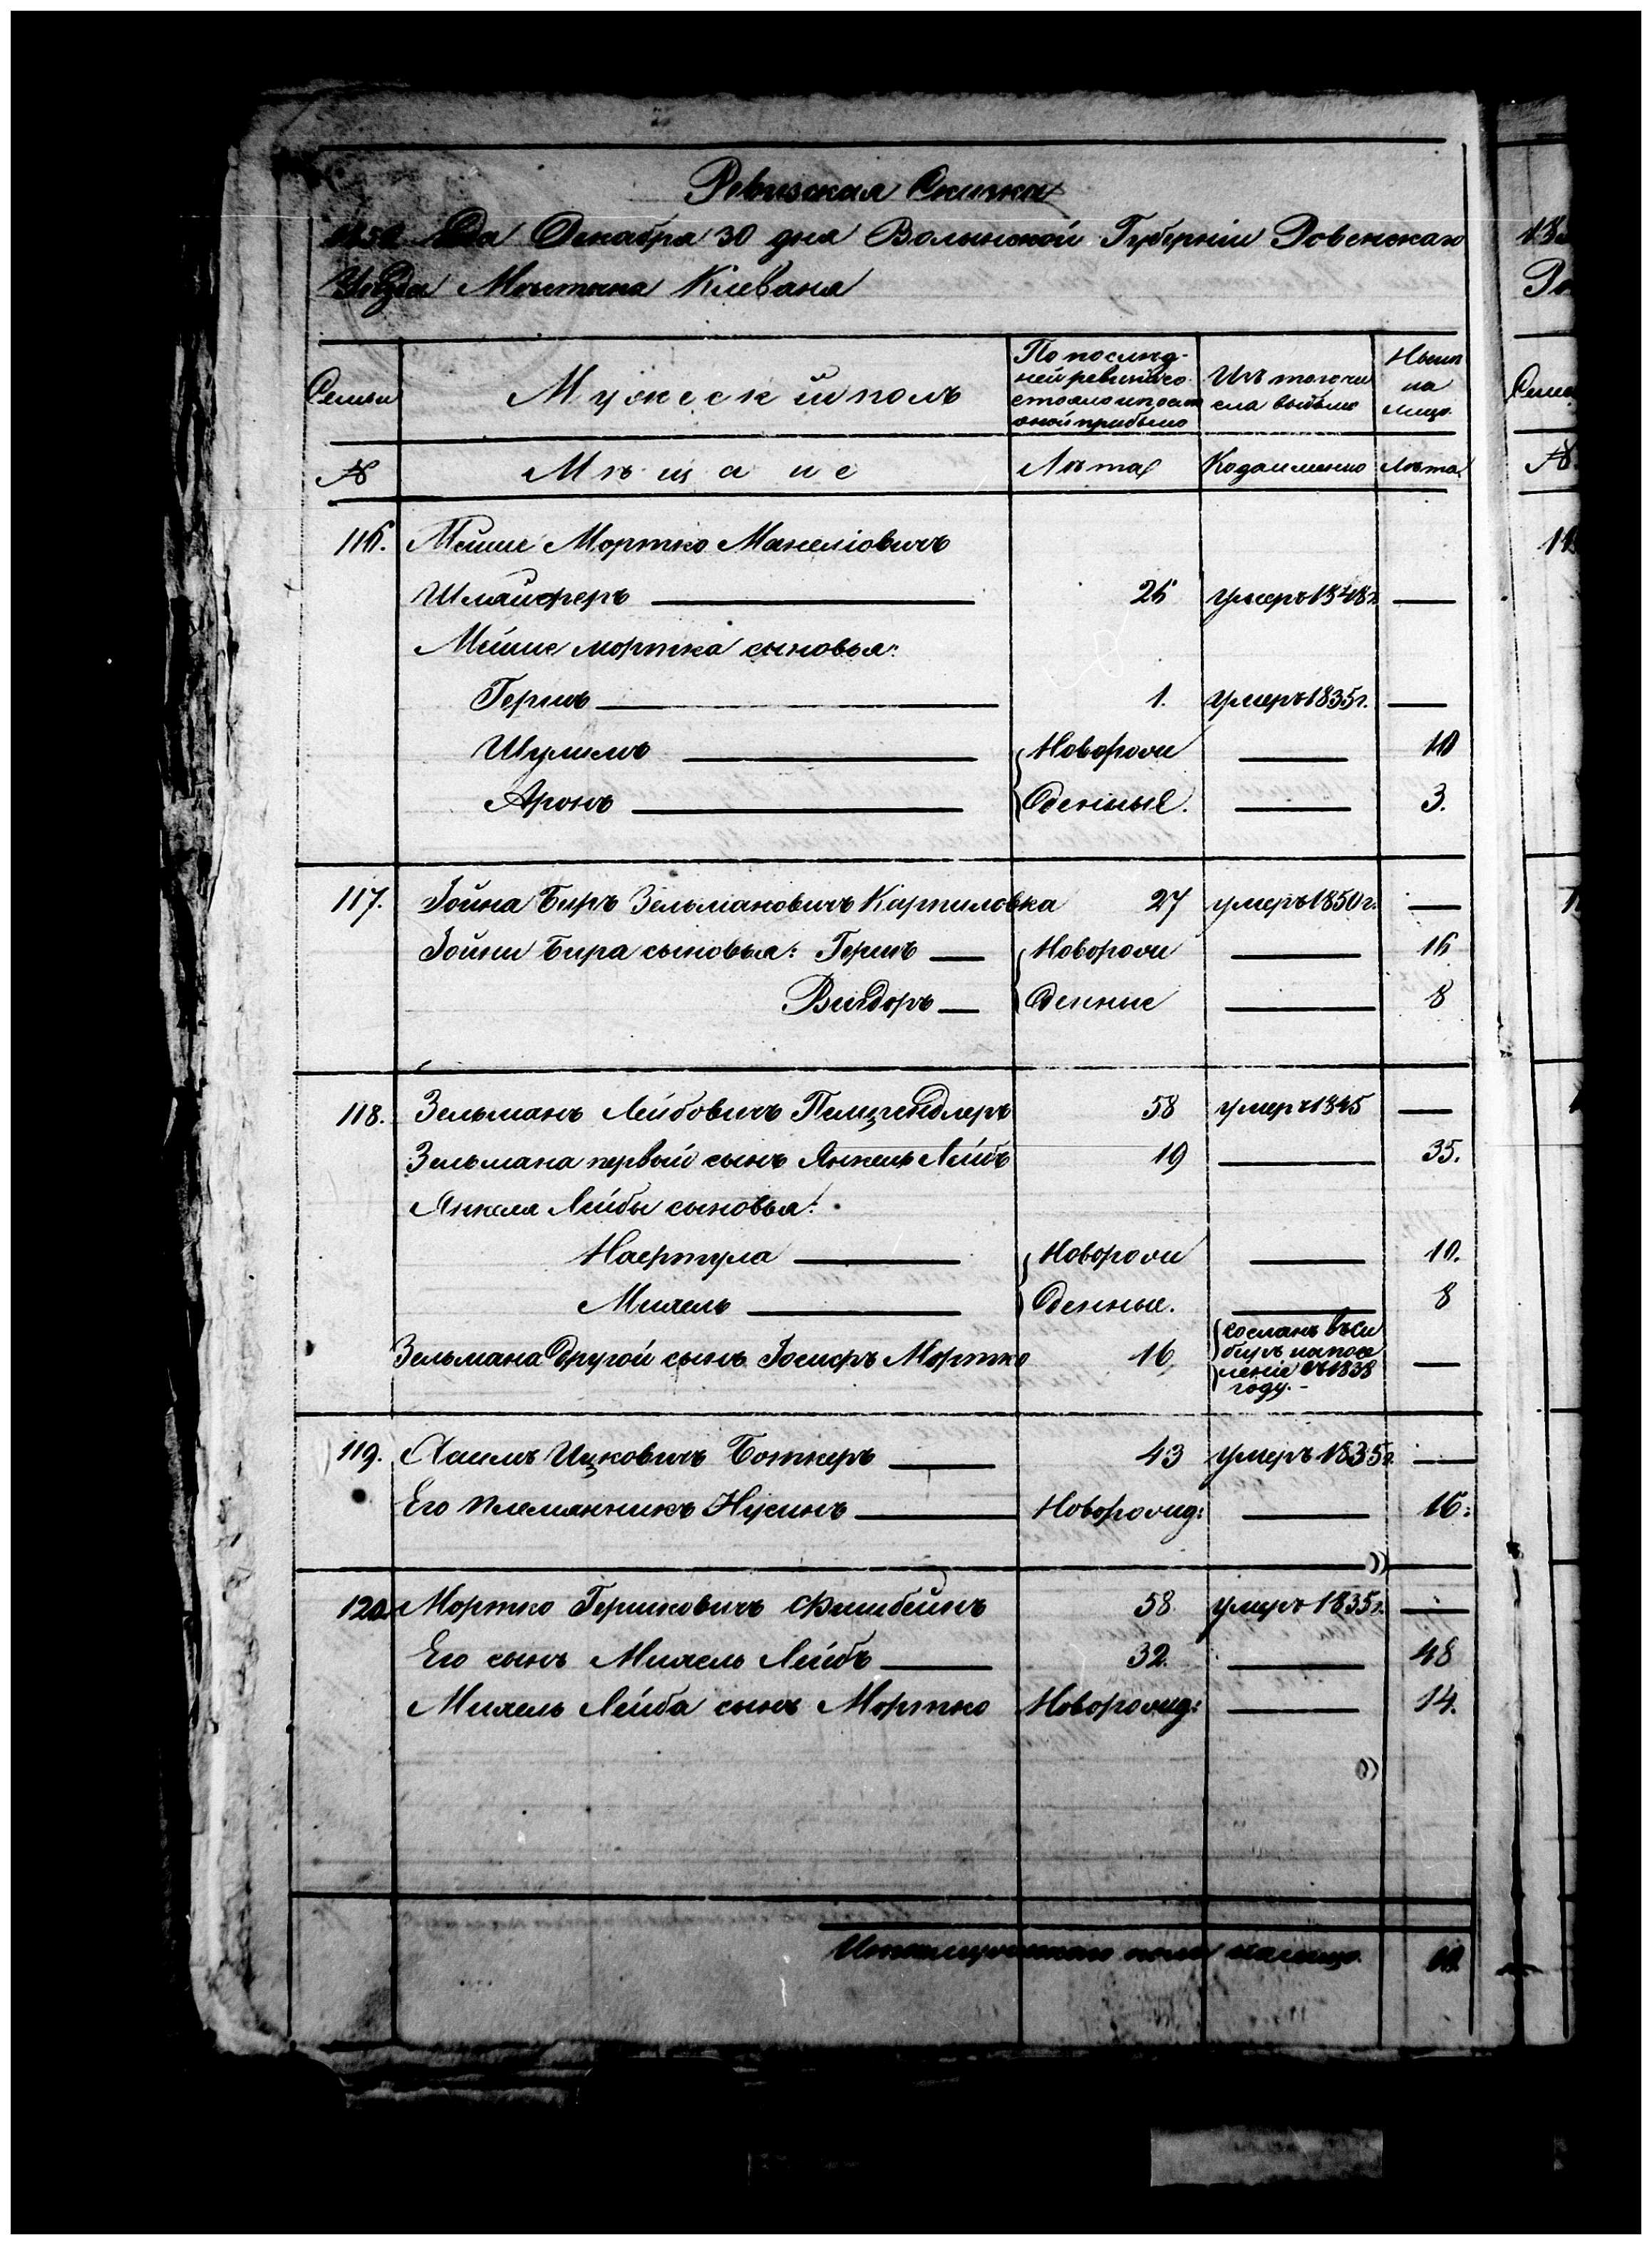 Ревизская Сказка
1850 Года Декабря 30 дня Волынской Губерніи Ровенскаго
Уѣзда Мѣстечка Клевана
Семьи
Мужескій полъ
По послѣд-
ней ревизіи со
стояло и посл
оной прибыло
Изъ того чи
сла выбыло
Нынѣ
на
лицо.
№
Мѣщане
Лѣта
Когда именно
Лѣта
116. Мошие Мортко Манеліовичъ
Шлайферъ 26 умеръ 1848г.
Мошие мортка сыновья:
Гершъ 1. умеръ 1835г.
Шулимъ Новорож 10
Аронъ денные. 3.
117. Іойна Биръ Зельмановичъ Карпиловка 27 умеръ 1850г.
Іойни Бира сыновья: Гершъ Новорож 16
Вигдоръ денные 8
118. Зельманъ Лейбовичъ Пелцгендлеръ 58 умеръ 1845
Зельмана первый сынъ Янкель Лейбъ 19 35.
Янкеля Лейбы сыновья:
Нафтула Новорож 10.
Михель денные. 8
Зельмана другой сынъ Іосифъ Мортко 16
сосланъ въ Си
биръ на посе
леніе въ 1838
году.-
119. Хаимъ Ицковичъ Боткеръ 43 умеръ 1835г.
Его племянникъ Нусинъ Новорожд: 16:
120. Мортко Гершковичъ Фишбейнъ 58 умеръ 1835г.
Его сынъ Михель Лейбъ 32. 48
Михель Лейба сынъ Мортко Новорожд: 14.
Итого мужескаго пола налицо.